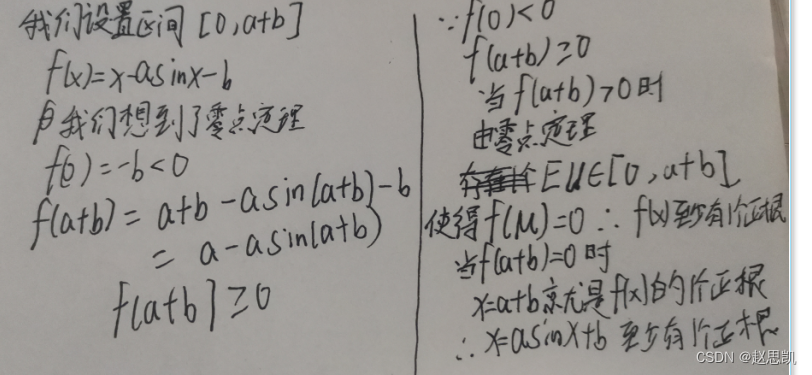 我们设置区间[0,a+b]
f(x)=x-asinx-b
我们想到了零点定理
f(0)=-b<0
f(a+b)=a+b-asin(a+b)-b
=a-asin(a+b)
f(a+b)≥0
∵f(0)<0
f(a+b)≥0
当f(a+b)>0时
由零点定理
EU∈[0,a+b]
使得f(M)=0∴f(x)至少有1个正根
当f(a+b)=0时
x=a+b就是f(x)的1个正根
∴x=asinx+b至少有1个正根
CSDN @赵思凯